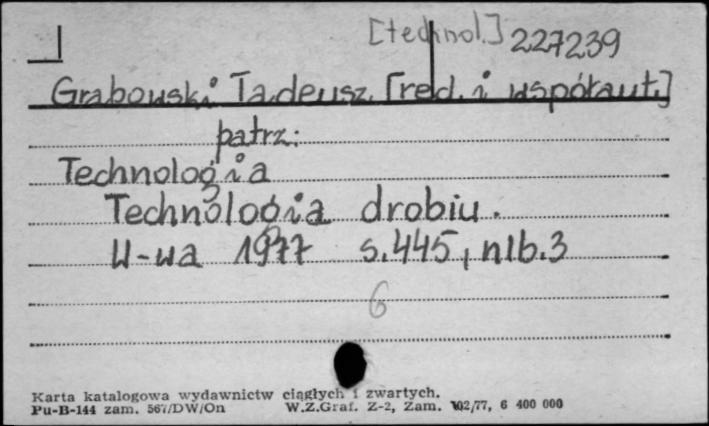 [technol.] 227239
Grabowski Tadeusz [red. i współaut.]
patrz:
Technologia
Technologia drobiu.
W-wa 1977 s. 445, nlb. 3
6
Karta katalogowa wydawnictw ciągłych i zwartych.
Pu-B-144 zam. 567/DW/On W.Z.Graf. Z-2, Zam. 102/77, 6 400 000